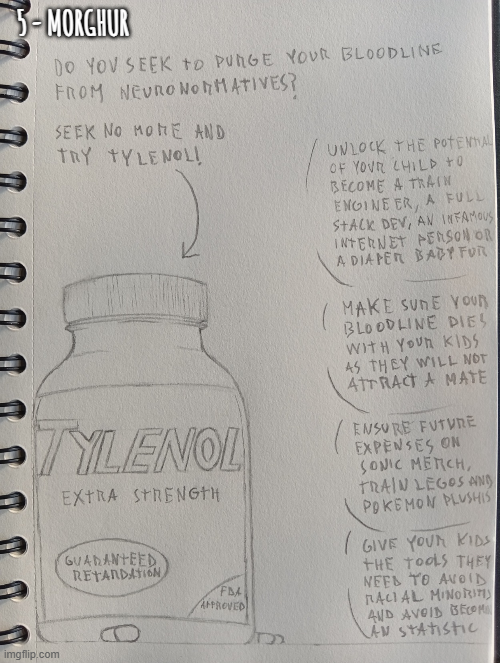 5 - MORGHUR
DO YOU SEEK TO PURGE YOUR BLOODLINE
FROM NEURONORMATIVES?
SEEK NO MORE AND
TRY TYLENOL!
UNLOCK THE POTENTIAL
OF YOUR CHILD TO
BECOME A TRAIN
ENGINEER, A FULL
STACK DEV, AN INFAMOUS
INTERNET PERSON OR
A DIAPER BABY FUR
MAKE SURE YOUR
BLOODLINE DIES
WITH YOUR KIDS
AS THEY WILL NOT
ATTRACT A MATE
ENSURE FUTURE
EXPENSES ON
SONIC MERCH,
TRAIN LEGOS AND
POKEMON PLUSHIS
GIVE YOUR KIDS
THE TOOLS THEY
NEED TO AVOID
RACIAL MINORITIES
AND AVOID BECOME
AN STATISTIC
TYLENOL
EXTRA STRENGTH
GUARANTEED
RETARDATION
FDA
APPROVED
imgflip.com